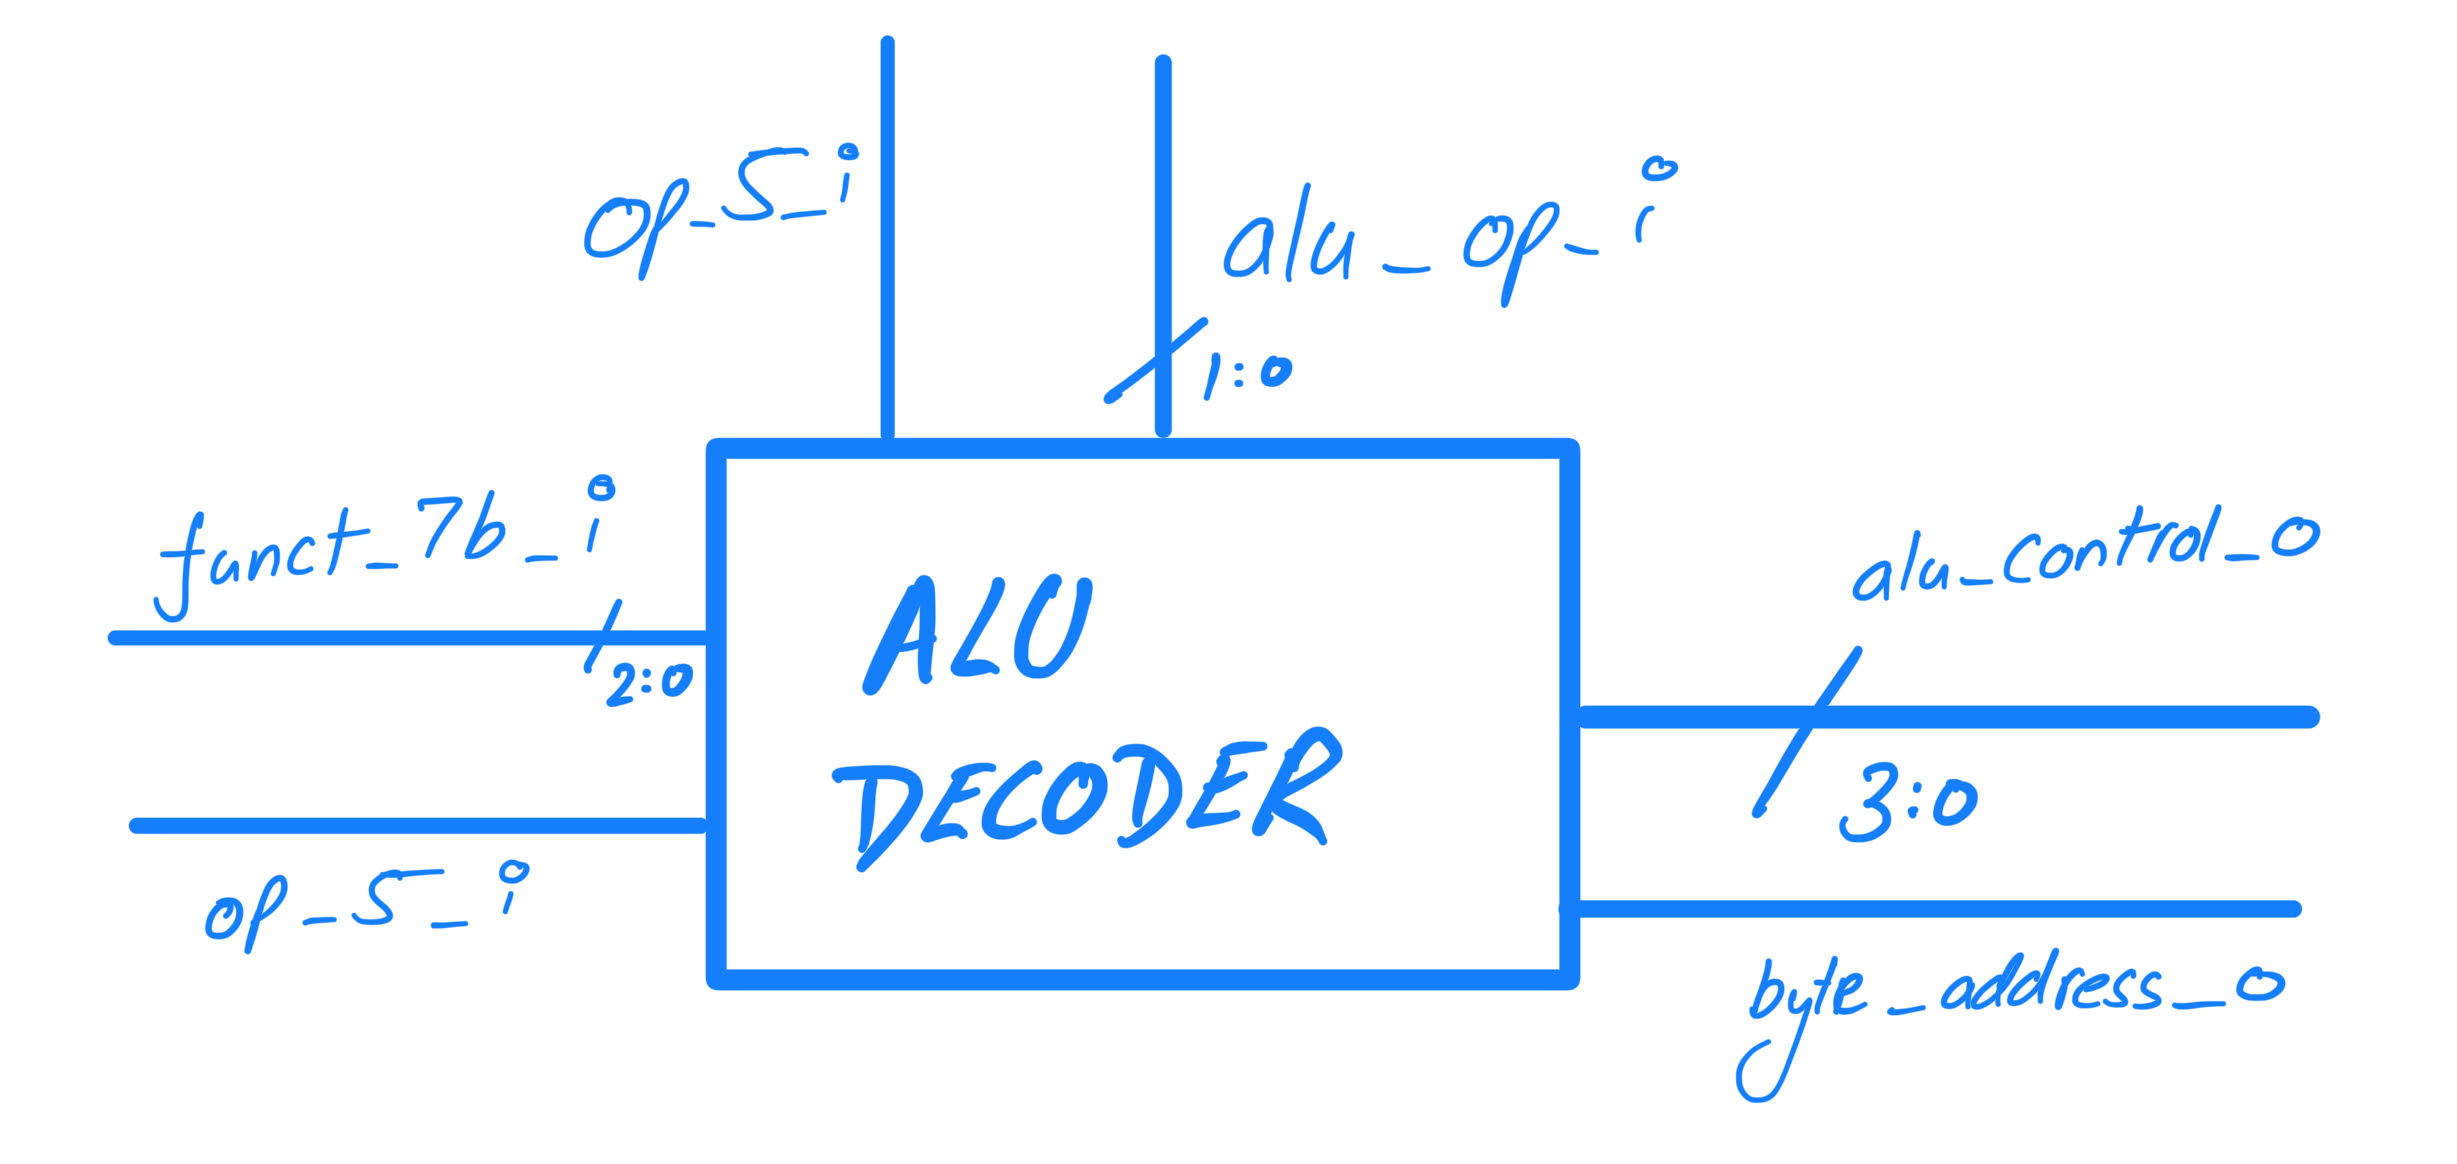 op_5_i
alu_op_i
1:0
funct_7b_i
2:0
ALU
DECODER
alu_control_o
3:0
op_5_i
byte_address_o